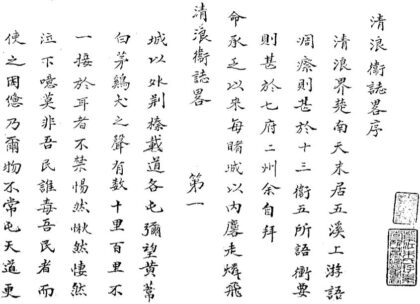 清浪衞誌畧序
清浪界楚南天末居五溪上游語
凋瘵則甚於十三衞五所語衝要
則甚於七府二州余自拜
命承乏以來每睹城以內塵走烽飛
清浪衞誌畧　第一
城以外荆榛載道各屯彌望黄蒿
白茅鷄犬之聲有數十里百里不
一接於耳者不禁惕然愀然悽然
泣下噫莫非吾民誰毒吾民者而
使之困憊乃爾物不常屯天道更